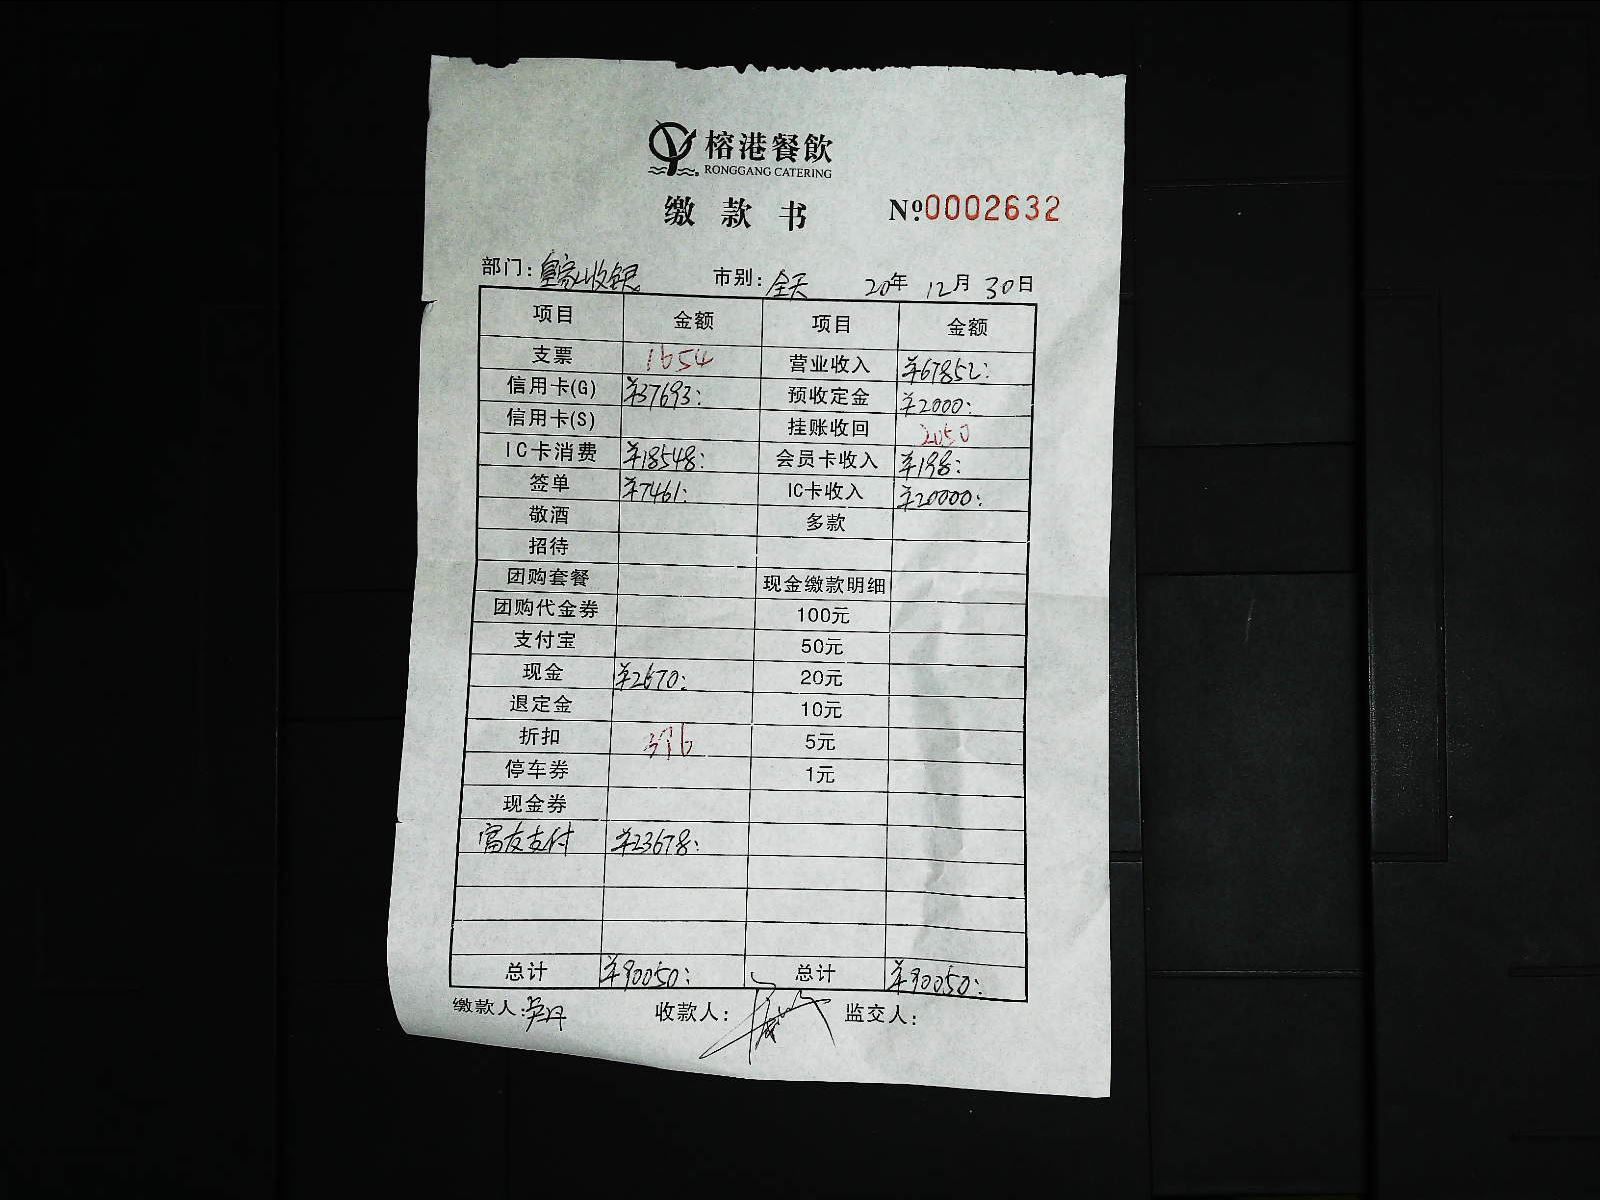 榕港餐飲
RONGGANG CATERING
缴款书 №0002632
部门：皇家收银 市别：全天 20年 12月 30日
项目 金额 项目 金额
支票 1654 营业收入 ¥67852:
信用卡(G) ¥37693: 预收定金 ¥2000:
信用卡(S) 挂账收回 2050
IC卡消费 ¥18548: 会员卡收入 ¥198:
签单 ¥7461: IC卡收入 ¥20000:
敬酒 多款
招待
团购套餐 现金缴款明细
团购代金券 100元
支付宝 50元
现金 ¥2670: 20元
退定金 10元
折扣 396 5元
停车券 1元
现金券
富友支付 ¥23678:
总计 ¥90050: 总计 ¥90050:
缴款人： 收款人： 监交人：